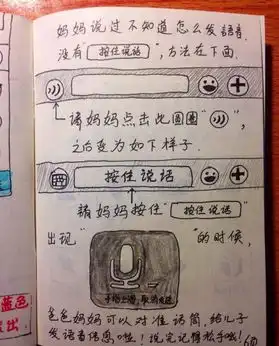 妈妈说过不知道怎么发语音
没有"按住说话",方法在下面.
请妈妈点击此圆圈"
之后变为如下样子.
按住 说话
请妈妈按住"按住 说话"
出现" "的时候,
手指上滑,取消发送
爸爸妈妈可以对准话筒,给儿子
发语音信息啦!说完记得松手啦!
蓝色